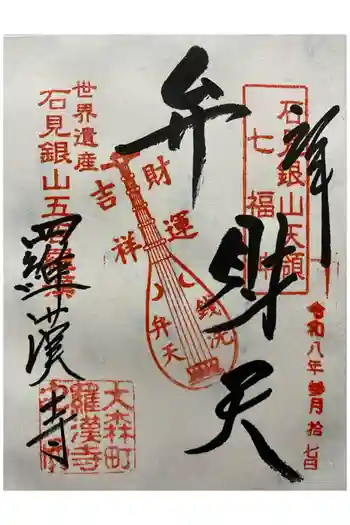 石見銀山天領
七福神
拝
弁財天
令和八年参月拾七日
財運
吉祥
銭洗
弁天
世界遺産
石見銀山五百羅漢
羅漢寺
大森町
羅漢寺